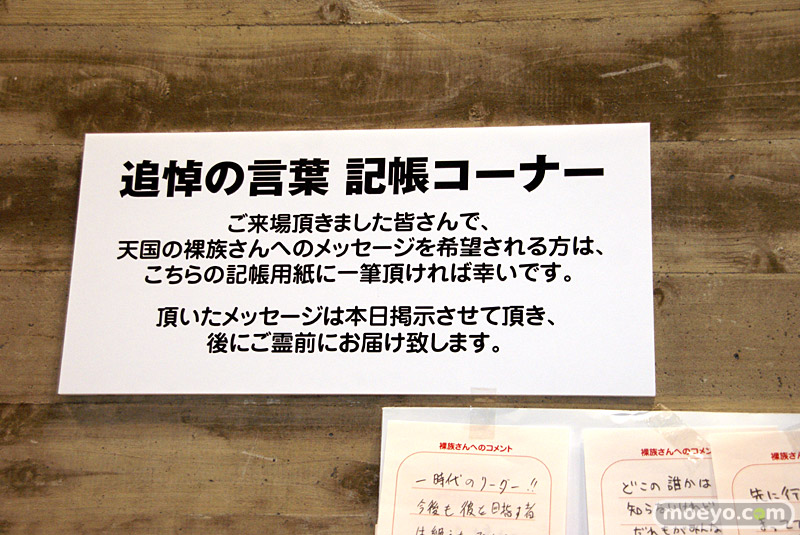 追悼の言葉 記帳コーナー
ご来場頂きました皆さんで、
天国の裸族さんへのメッセージを希望される方は、
こちらの記帳用紙に一筆頂ければ幸いです。
頂いたメッセージは本日掲示させて頂き、
後にご霊前にお届け致します。
裸族さんへのコメント
一時代のリーダー!!
今後も彼を目指す者
裸族さんへのコメン
どこの誰かは
知らないけれど
だれもがみんな
裸族さ
先に行
moeyo.com